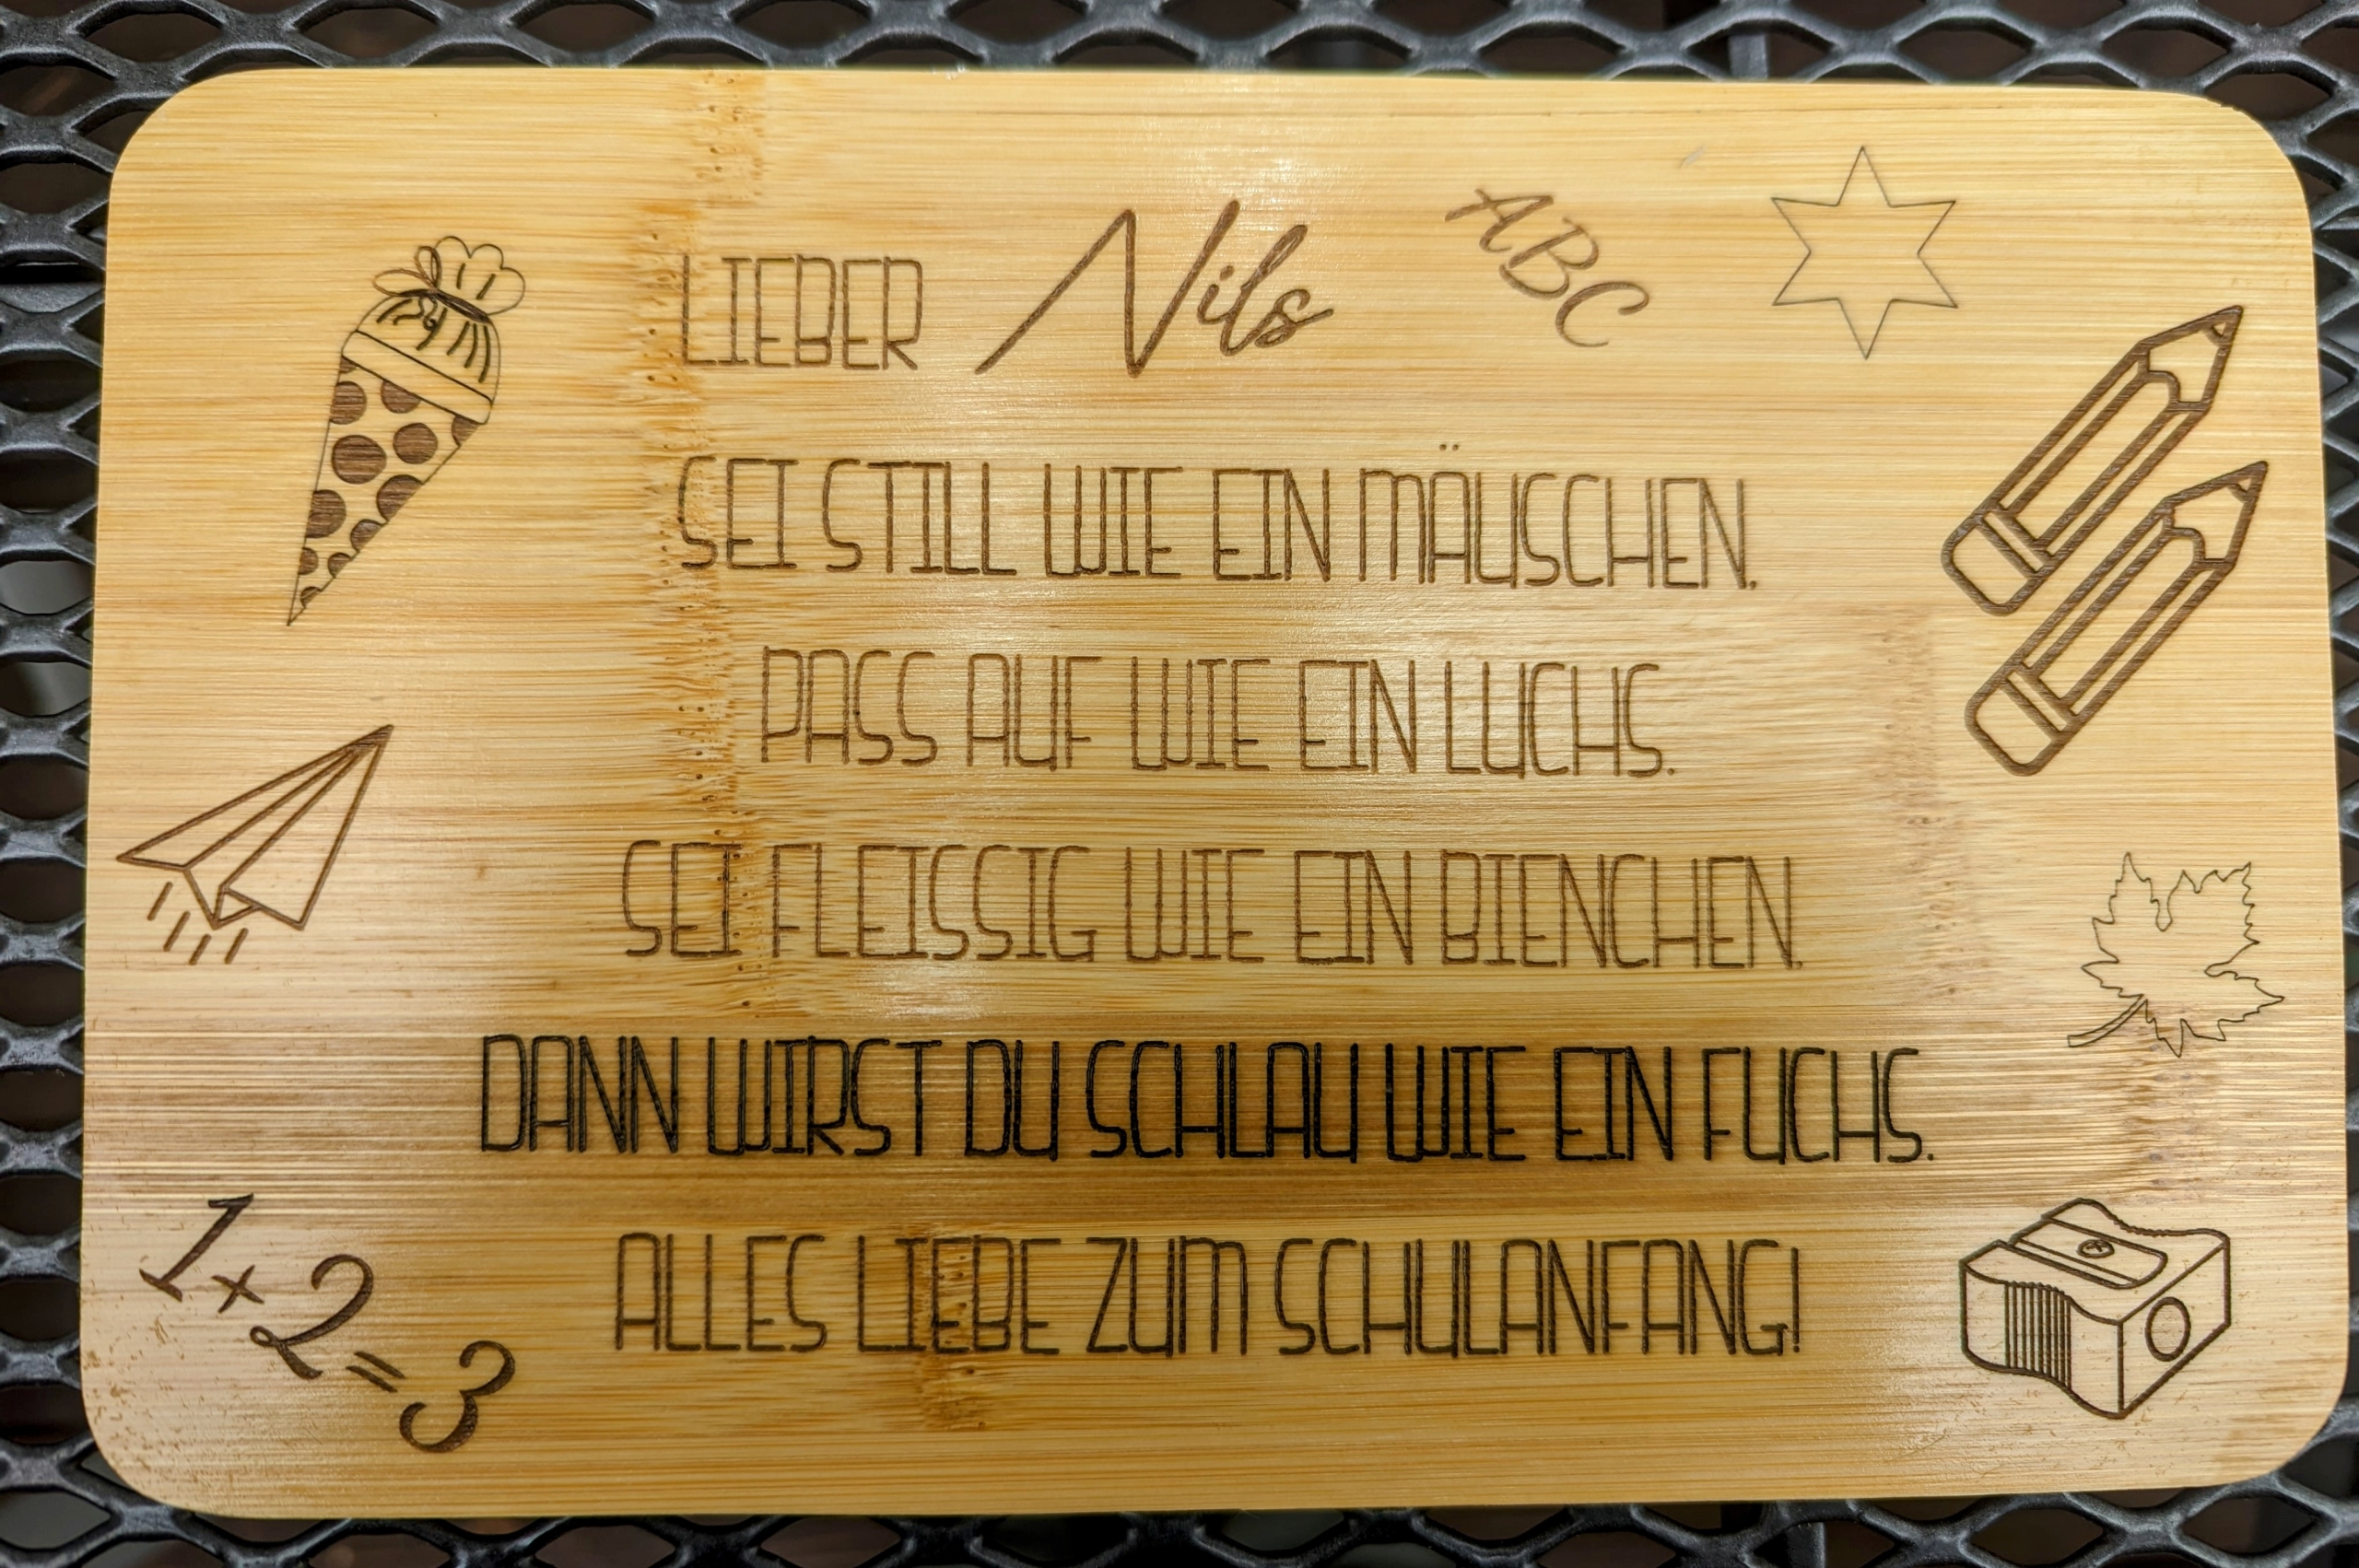 LIEBER Nils
ABC
SEI STILL WIE EIN MÄUSCHEN.
PASS AUF WIE EIN LUCHS.
SEI FLEISSIG WIE EIN BIENCHEN.
DANN WIRST DU SCHLAU WIE EIN FUCHS.
ALLES LIEBE ZUM SCHULANFANG!
1+2=3